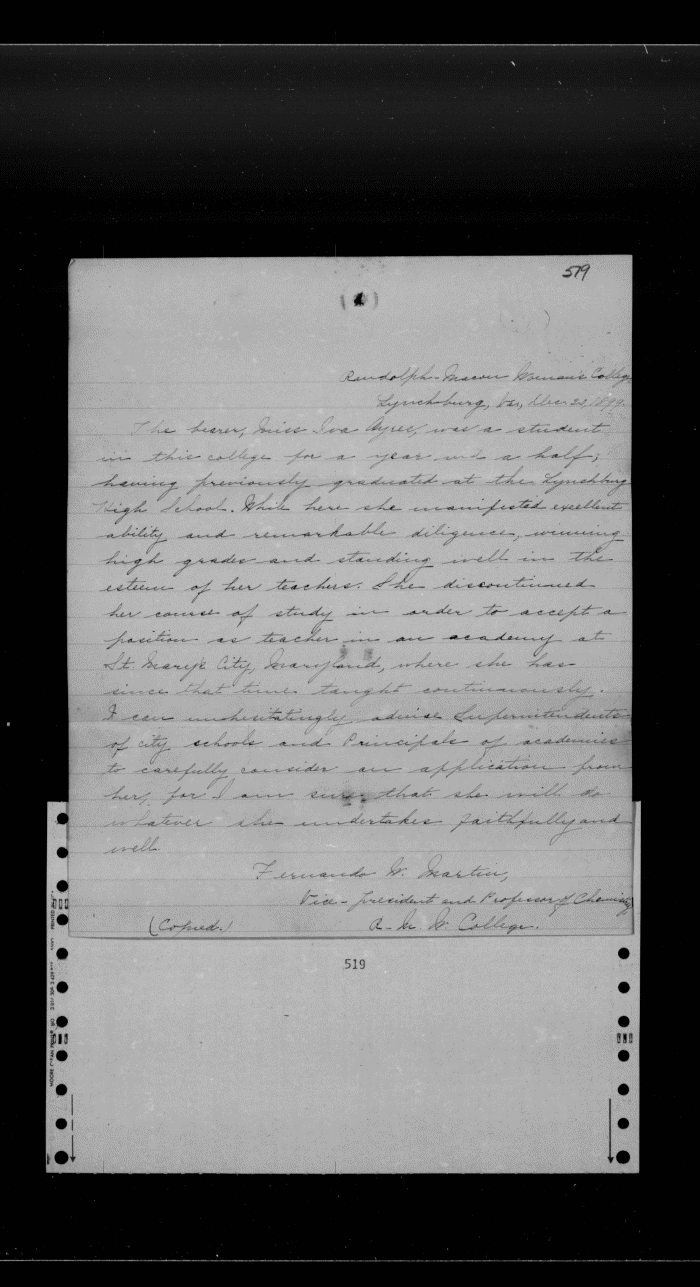 519
Randolph-Macon Woman's College
Lynchburg, Va.,
The bearer, Miss Iva Ayres, was a student
in this college for a year and a half,
having previously graduated at the Lynchburg
High School. While here she manifested excellent
ability and remarkable diligence, winning
high grades and standing well in the
esteem of her teachers. She discontinued
her course of study in order to accept a
position as teacher in an academy at
St. Mary's City, Maryland, where she has
since that time taught continuously.
I can unhesitatingly advise Superintendents
of city schools and Principals of academies
to carefully consider an application from
her, for I am sure that she will do
whatever she undertakes faithfully and
well.
Fernando W. Martin,
Vice-president and Professor of Chemistry
(Copied.) R.-M. W. College.
519